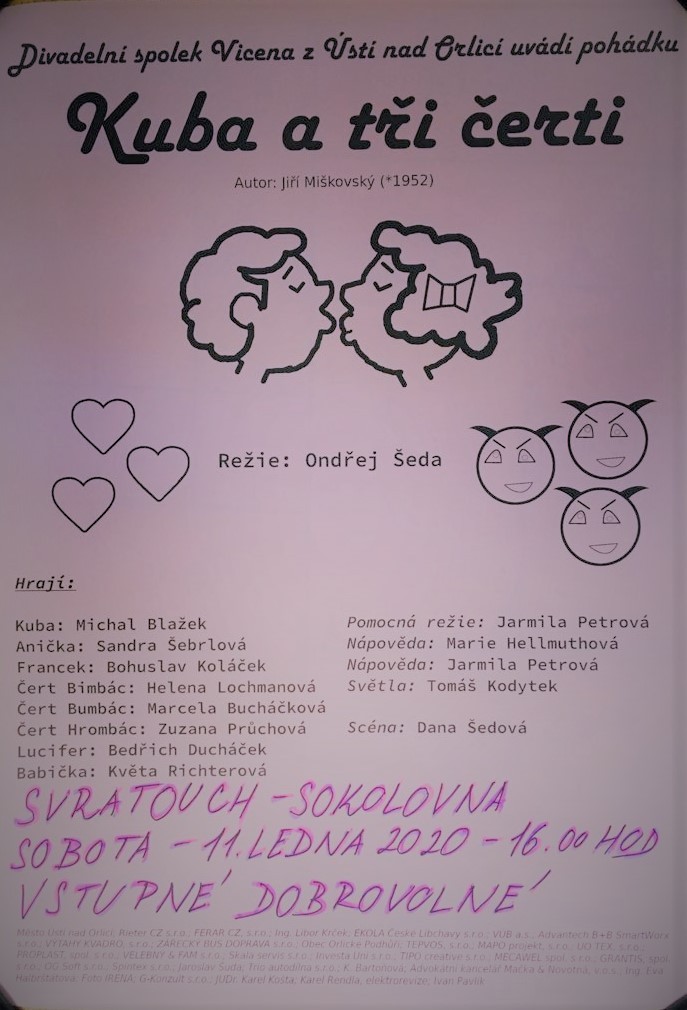 Divadelní spolek Vicena z Ústí nad Orlicí uvádí pohádku
Kuba a tři čerti
Autor: Jiří Miškovský (*1952)
Režie: Ondřej Šeda
Hrají:
Kuba: Michal Blažek
Anička: Sandra Šebrlová
Francek: Bohuslav Koláček
Čert Bimbác: Helena Lochmanová
Čert Bumbác: Marcela Bucháčková
Čert Hrombác: Zuzana Průchová
Lucifer: Bedřich Ducháček
Babička: Květa Richterová
Pomocná režie: Jarmila Petrová
Nápověda: Marie Hellmuthová
Nápověda: Jarmila Petrová
Světla: Tomáš Kodytek
Scéna: Dana Šedová
SVRATOUCH - SOKOLOVNA
SOBOTA - 11. LEDNA 2020 - 16.00 HOD
VSTUPNÉ DOBROVOLNÉ
Město Ústí nad Orlicí; Rieter CZ s.r.o.; FERAR CZ, s.r.o.; Ing. Libor Krček; EKOLA České Libchavy s.r.o.; VUB a.s.; Advantech B+B SmartWorx
s.r.o.; VÝTAHY KVADRO, s.r.o.; ZÁŘECKÝ BUS DOPRAVA s.r.o.; Obec Orlické Podhůří; TEPVOS, s.r.o.; MAPO projekt, s.r.o.; UO TEX, s.r.o.;
PROPLAST, spol. s r.o.; VELEBNÝ & FAM s.r.o.; Skala servis s.r.o.; Investa Uni s.r.o.; TIPO creative s.r.o.; MECAWEL spol. s r.o.; GRANTIS, spol.
s r.o.; OG Soft s.r.o.; Spintex s.r.o.; Jaroslav Suda; Trio autodílna s.r.o.; K. Bartoňová; Advokátní kancelář Mačka & Novotná, v.o.s.; Ing. Eva
Foto IRENA; G-Konzult s.r.o.; JUDr. Karel Kosta; Karel Rendla, elektrorevize; Ivan Pavlík